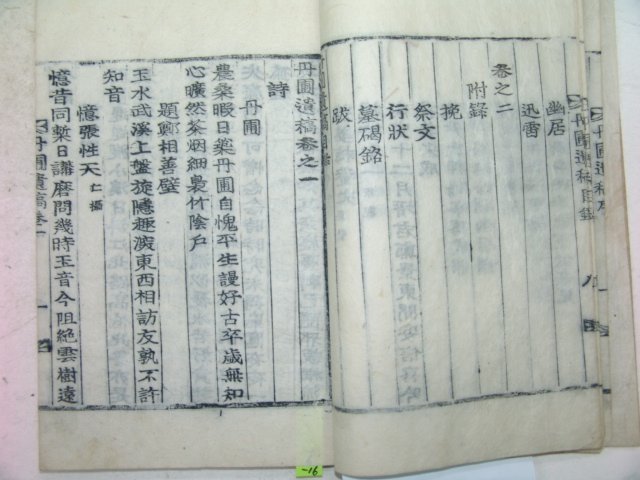 幽居
迅雷
卷之二
附錄
挽
祭文
行狀
墓碣銘
跋
丹圃遺稿卷之一
詩
丹圃
農桑暇日藥丹圃自愧平生謾好古卒歲無知
心曠然茶烟細裊竹陰戶
題鄭相善壁
玉水武溪上盤旋隱趣濃東西相訪友孰不許
知音
憶張性天仁攝
憶昔同契日講磨問幾時玉音今阻絶雲樹遠
丹圃遺稿卷一